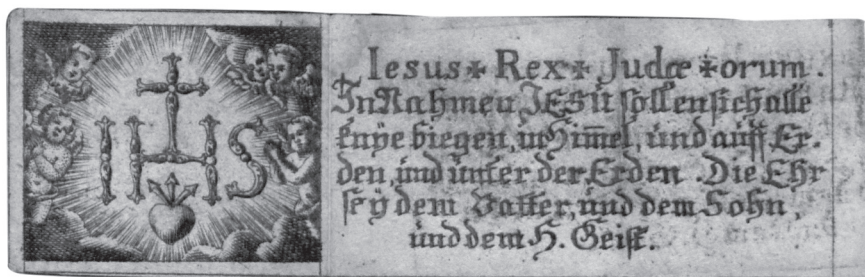 IHS
Iesus ✣ Rex ✣ Judæ ✣ orum.
In Nahmen JESU sollen sich alle
knye biegen, im Him̄el, und auff Er-
den, und unter der Erden. Die Ehr
seÿ dem Vatter, und dem Sohn,
und dem H. Geist.